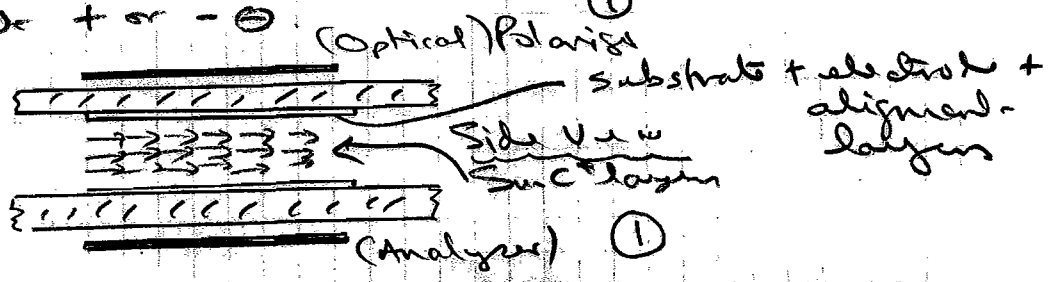 + or - ⊖
①
(Optical) Polariser
Substrate + electrode +
alignment
layers
Side View
SmC* layers
(Analyser) ①